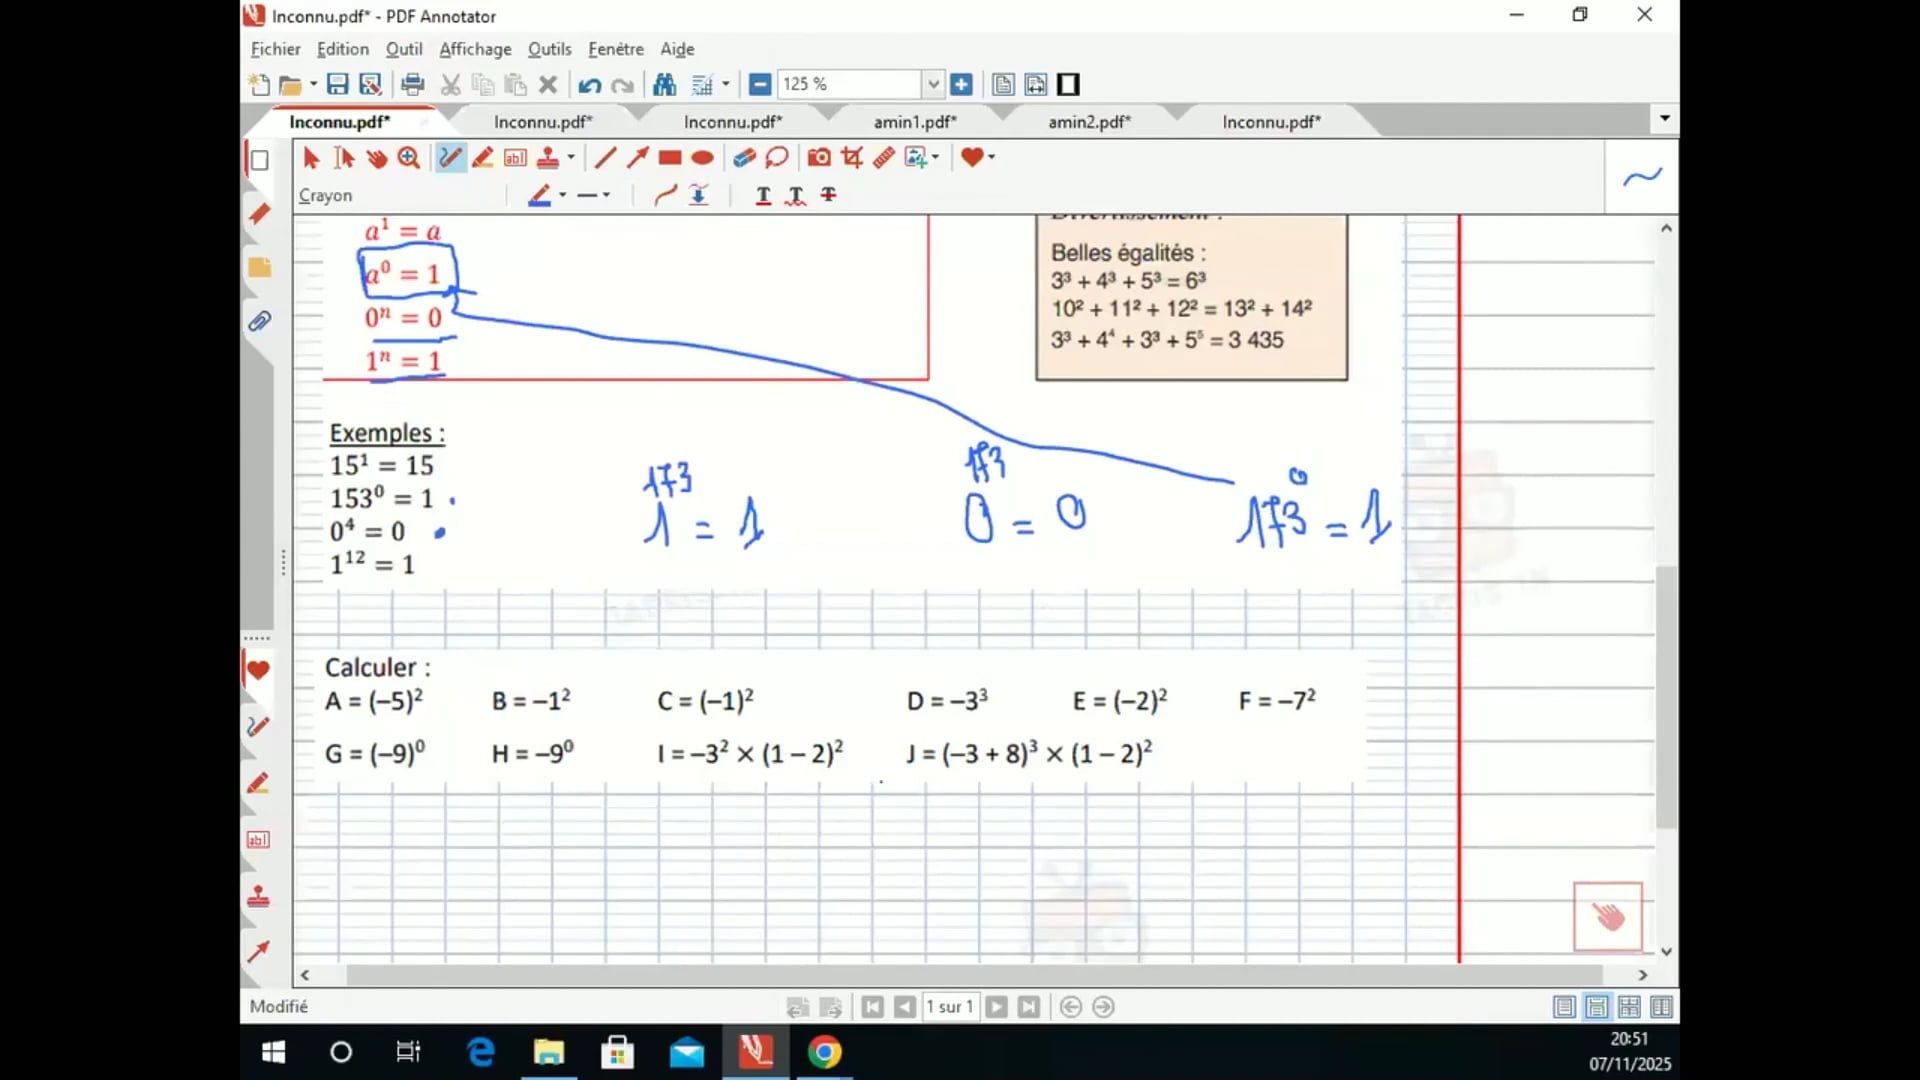 Inconnu.pdf* - PDF Annotator
Fichier Edition Outil Affichage Outils Fenêtre Aide
125 %
Inconnu.pdf* Inconnu.pdf* Inconnu.pdf* amin1.pdf* amin2.pdf* Inconnu.pdf*
Crayon
a¹ = a
a⁰ = 1
0ⁿ = 0
1ⁿ = 1
Belles égalités :
3³ + 4³ + 5³ = 6³
10² + 11² + 12² = 13² + 14²
3³ + 4⁴ + 3³ + 5⁵ = 3 435
Exemples :
15¹ = 15
153⁰ = 1
0⁴ = 0
1¹² = 1
1¹⁷³ = 1
0¹⁷³ = 0
173⁰ = 1
Calculer :
A = (–5)² B = –1² C = (–1)² D = –3³ E = (–2)² F = –7²
G = (–9)⁰ H = –9⁰ I = –3² × (1 – 2)² J = (–3 + 8)³ × (1 – 2)²
Modifié
1 sur 1
20:51
07/11/2025